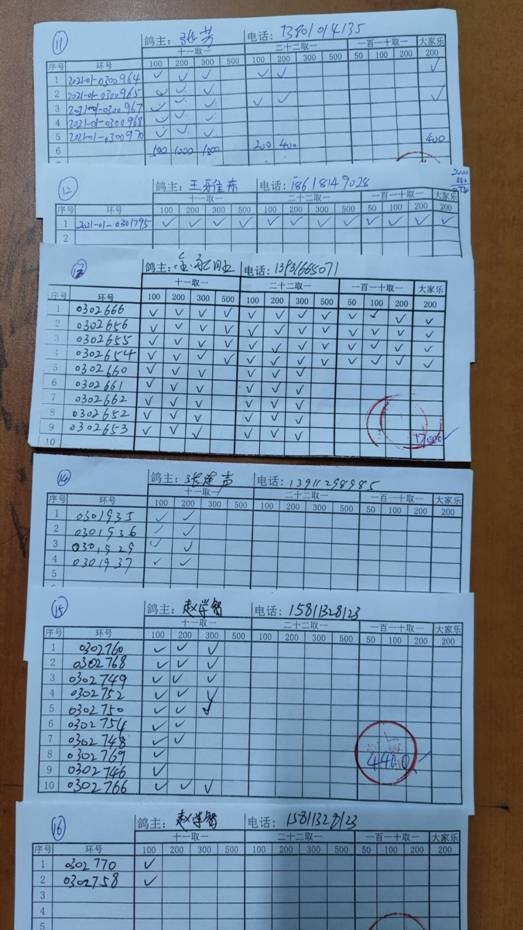 11 鸽主: 张芳 电话: 13801014135
十一取一 二十二取一 一百一十取一 大家乐
序号 环号 100 200 300 500 100 200 300 500 50 100 200 200
1 2021-01-0300964 ✓ ✓ ✓ ✓ ✓ ✓
2 2021-01-0300965 ✓ ✓ ✓ ✓
3 2021-01-0300967 ✓ ✓ ✓ ✓ ✓
4 2021-01-0300968 ✓ ✓ ✓
5 2021-01-0300970 ✓ ✓ ✓
6 200 400 400
12 鸽主: 王雅东 电话: 18618149028
十一取一 二十二取一 一百一十取一 大家乐
序号 环号 100 200 300 500 100 200 300 500 50 100 200 200
1 2021-01-0301795 ✓ ✓ ✓ ✓ ✓ ✓ ✓ ✓ ✓ ✓ ✓ ✓
2
鸽主: 电话: 13931665071
十一取一 二十二取一 一百一十取一 大家乐
序号 环号 100 200 300 500 100 200 300 500 50 100 200 200
1 0302666 ✓ ✓ ✓ ✓ ✓ ✓ ✓ ✓ ✓ ✓ ✓ ✓
2 0302656 ✓ ✓ ✓ ✓ ✓ ✓ ✓ ✓ ✓ ✓ ✓ ✓
3 0302655 ✓ ✓ ✓ ✓ ✓ ✓ ✓ ✓ ✓ ✓ ✓ ✓
4 0302654 ✓ ✓ ✓ ✓ ✓ ✓ ✓ ✓ ✓ ✓ ✓ ✓
5 0302660 ✓ ✓ ✓ ✓ ✓ ✓
6 0302661 ✓ ✓ ✓ ✓ ✓ ✓
7 0302662 ✓ ✓ ✓ ✓ ✓ ✓
8 0302652 ✓ ✓ ✓ ✓ ✓ ✓
9 0302653 ✓ ✓ ✓ ✓ ✓ ✓
10
14 鸽主: 电话: 13911298985
十一取一 二十二取一 一百一十取一 大家乐
序号 环号 100 200 300 500 100 200 300 500 50 100 200 200
1 0301935 ✓ ✓
2 0301936 ✓ ✓
3 0301929 ✓ ✓
4 0301937 ✓ ✓
5
15 鸽主: 赵学智 电话: 15811328123
十一取一 二十二取一 一百一十取一 大家乐
序号 环号 100 200 300 500 100 200 300 500 50 100 200 200
1 0302760 ✓ ✓ ✓
2 0302768 ✓ ✓ ✓
3 0302749 ✓ ✓ ✓
4 0302752 ✓ ✓ ✓
5 0302750 ✓ ✓ ✓
6 0302754 ✓ ✓
7 0302748 ✓ ✓
8 0302769 ✓
9 0302746 ✓
10 0302766 ✓ ✓ ✓
4400 ✓
16 鸽主: 赵学智 电话: 15811328123
十一取一 二十二取一 一百一十取一 大家乐
序号 环号 100 200 300 500 100 200 300 500 50 100 200 200
1 0302770 ✓
2 0302758 ✓
3
4
5